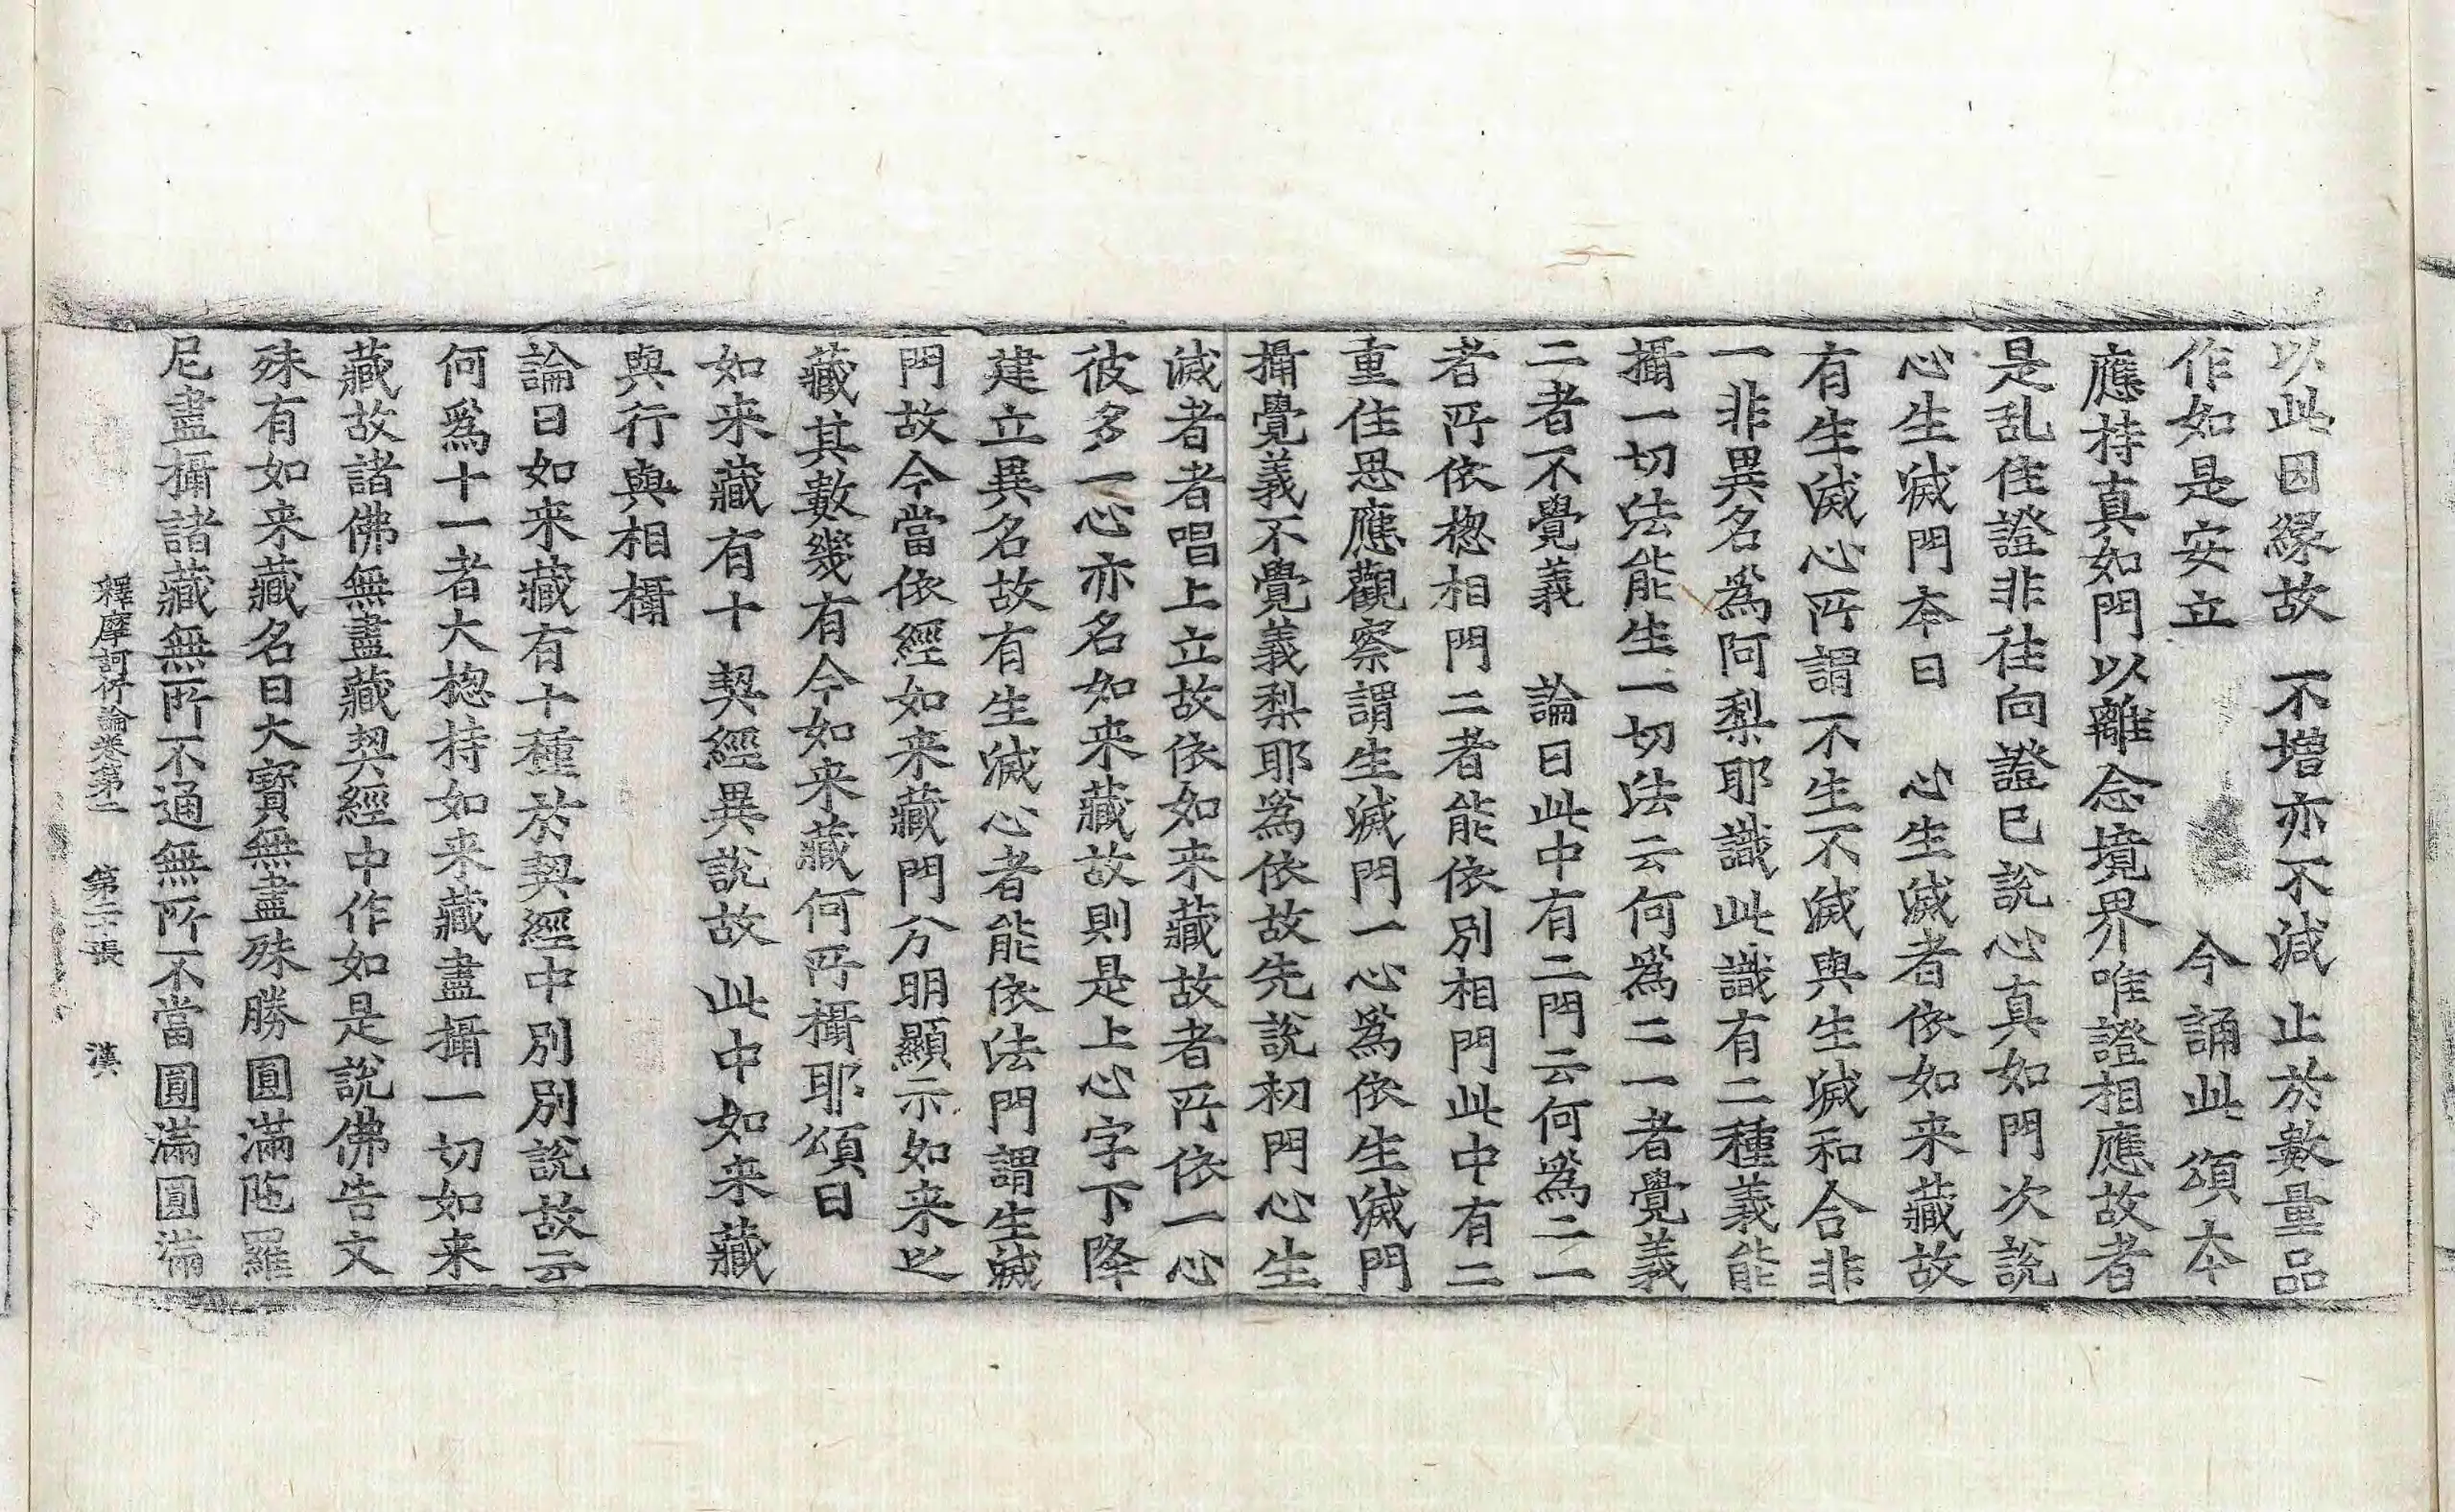 以此因緣故　不增亦不減　止於數量品
作如是安立　　　　　今誦此頌本
應持真如門以離念境界唯證相應故者
是乱住證非往向證已說心真如門次說
心生滅門本曰　心生滅者依如来藏故
有生滅心所謂不生不滅與生滅和合非
一非異名為阿梨耶識此識有二種義能
攝一切法能生一切法云何為二一者覺義
二者不覺義　論曰此中有二門云何為二一
者所依楤相門二者能依別相門此中有二
重住思應觀察謂生滅門一心為依生滅門
攝覺義不覺義梨耶為依故先說初門心生
滅者者唱上立故依如来藏故者所依一心
彼多一心亦名如来藏故則是上心字下降
建立異名故有生滅心者能依法門謂生滅
門故今當依經如来藏門分明顯示如来之
藏其數幾有今如来藏何所攝耶頌曰
如来藏有十　契經異說故　此中如来藏
與行與相攝
論曰如来藏有十種於契經中別別說故云
何為十一者大楤持如来藏盡攝一切如来
藏故諸佛無盡藏契經中作如是說佛告文
殊有如来藏名曰大寶無盡殊勝圓滿陁羅
尼盡攝諸藏無所不通無所不當圓滿圓滿
釋摩訶衍論卷第二　第二十張　漢